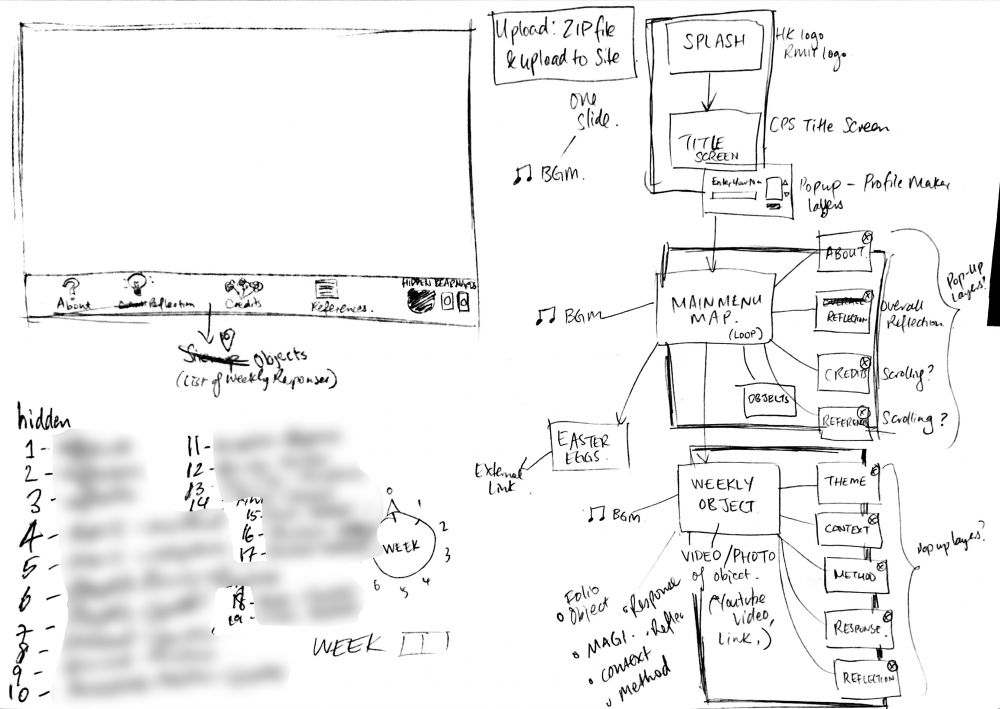 Upload: ZIP file
& upload to Site
one
slide.
BGM.
SPLASH
HK logo
Rmit logo
TITLE
SCREEN
CPS Title Screen
Popup - Profile Maker
Layers
About
Reflection
Credits
References.
HIDDEN
Objects
(List of Weekly Responses)
BGM
MAIN MENU
MAP.
(LOOP)
ABOUT.
OVERALL
REFLECTION
Overall
Reflection
CREDITS
Scrolling?
REFERENCE
Scrolling?
Pop-Up
Layers?
OBJECTS
EASTER
EGGS.
External
Link
BGM.
WEEKLY
OBJECT.
THEME
CONTEXT
METHOD
RESPONSE.
REFLECTION
Pop up layers?
VIDEO/PHOTO
of object.
(Youtube
video
Link.)
Folio
Object
Response
MAGI.
Reflec
Context
Method
hidden
1 -
2 -
3 -
4 -
5 -
6 -
7 -
8 -
9 -
10 -
11 -
12 -
13 -
14
15 -
16 -
17 -
18 -
19 -
0
1
2
3
4
5
6
WEEK
WEEK